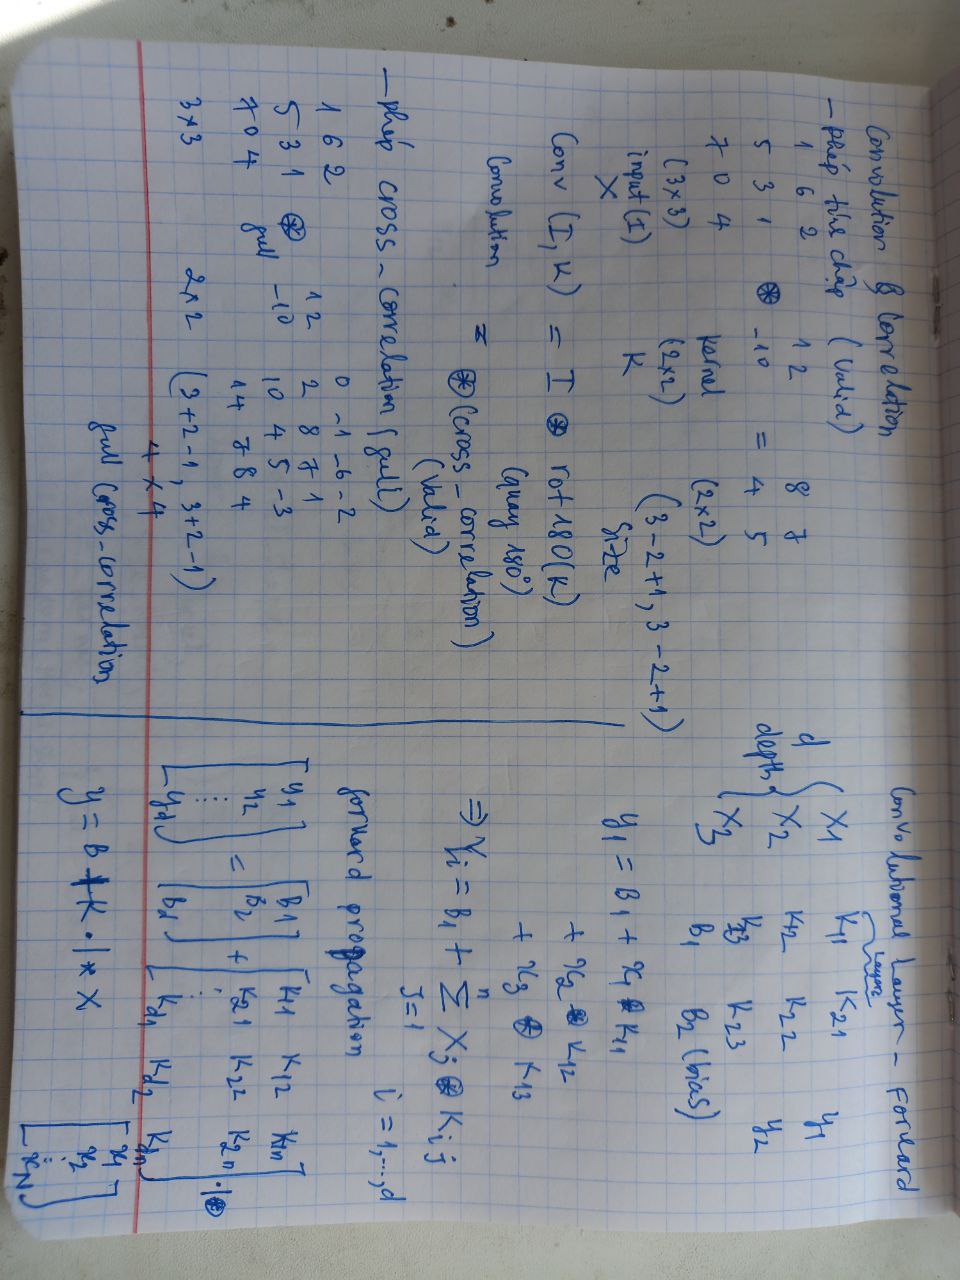 Convolution & Correlation
- phép tính chập (Valid)
1 6 2   1 2   8 7
5 3 1 ⊛ -1 0 = 4 5
7 0 4   kernel (2x2)
(3x3) (2x2) (3-2+1, 3-2+1)
input (I) K Size
X
Conv (I, K) = I ⊛ rot180(K)
(quay 180°)
Convolution = ⊛ (cross-correlation)
(Valid)
- phép cross-correlation (full)
0 -1 -6 -2
1 6 2   1 2   2 8 7 1
5 3 1 ⊛ -1 0   10 4 5 -3
7 0 4 full   14 7 8 4
3x3 2x2 (3+2-1, 3+2-1)
4 x 4
full cross-correlation
Convolutional Layer - Forward
Layers
d depth { X1 K11 K21 y1
X2 K12 K22 y2
X3 K13 K23
B1 B2 (bias)
y1 = B1 + x1 ⊛ K11
+ x2 ⊛ K12
+ x3 ⊛ K13
⇒ Yi = B1 + Σ Xj ⊛ Kij
n
J=1
i = 1,...,d
forward propagation
[y1 y2 ... yd] = [B1 B2 Bd] + [K11 K12 K1n
K21 K22 K2n
⋮
Kd1 Kd2 Kdn] .|⊛
[x1 x2 ... xN]
y = B + K .|* X